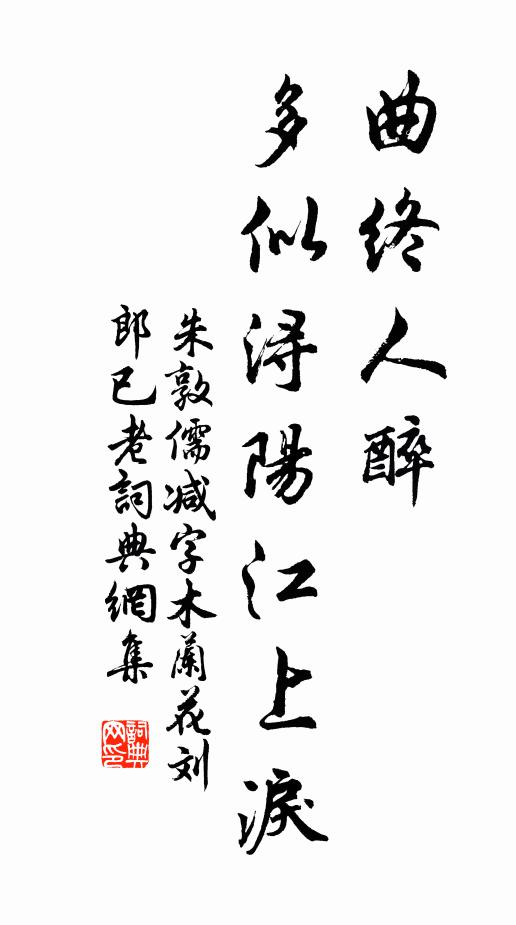 曲终人醉
多似浔陽江上淚
朱敦儒减字木蘭花刘
郎已老詞典網集
詞典网印